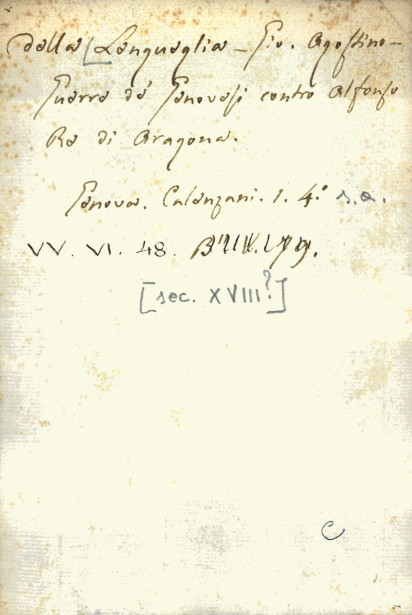 della [Lengueglia - Gio. Agostino -
Guerra de' Genovesi contro Alfonso
Re di Aragona.
Genova. Calenzani. 1. 4.° s.a.
VV. VI. 48.
[sec. XVIII?]
C